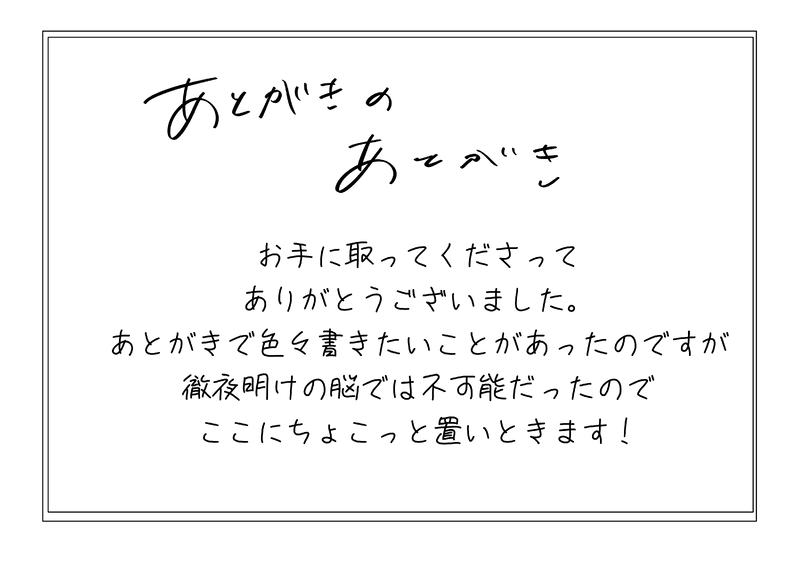 あとがきの
あとがき
お手に取ってくださって
ありがとうございました。
あとがきで色々書きたいことがあったのですが
徹夜明けの脳では不可能だったので
ここにちょこっと置いときます！